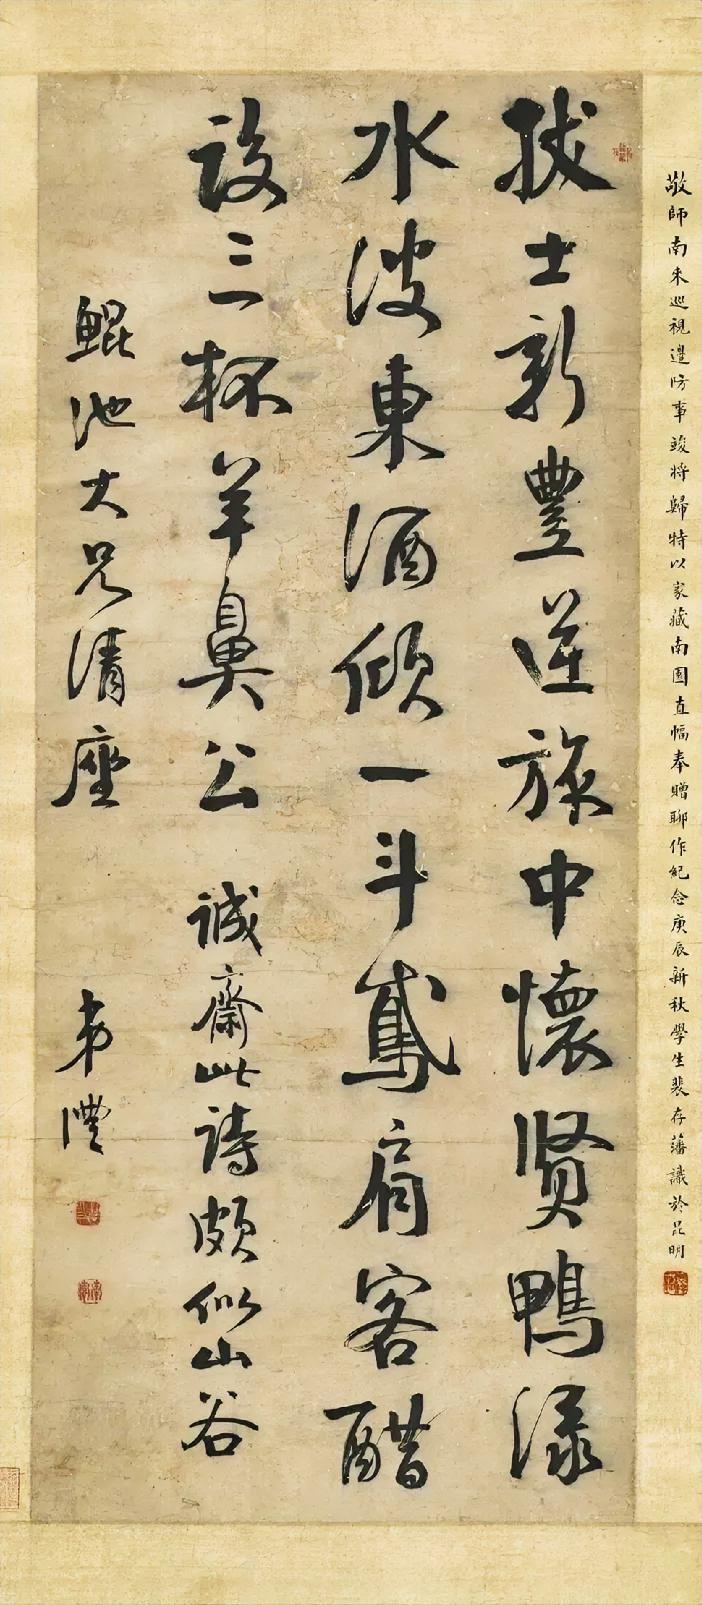 敬師南来巡視邊防事竣將歸特以家藏南園直幅奉贈聊作紀念庚辰新秋學生裴存藩識於昆明
拔士新豐逆旅中懷贤鴨渌
水波東酒傾一斗鳶肩客醋
設三杯羊鼻公 誠齋此詩頗似山谷
鯤池大兄清座 弟灃